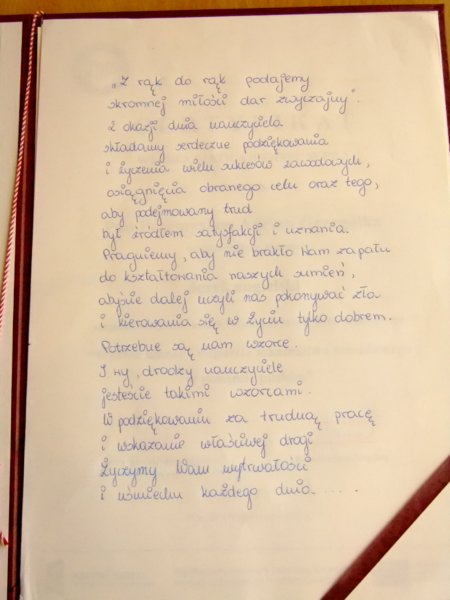 „Z rąk do rąk podajemy
skromnej miłości dar zwyczajny".
Z okazji dnia nauczyciela
składamy serdeczne podziękowania
i życzenia wielu sukcesów zawodowych,
osiągnięcia obranego celu oraz tego,
aby podejmowany trud
był źródłem satysfakcji i uznania.
Pragniemy, aby nie brakło Wam zapału
do kształtowania naszych sumień,
abyście dalej uczyli nas pokonywać zła
i kierowania się w życiu tylko dobrem.
Potrzebne są nam wzorce.
I wy, drodzy nauczyciele
jesteście takimi wzorcami.
W podziękowaniu za trudną pracę
i wskazanie właściwej drogi
Życzymy Wam wytrwałości
i uśmiechu każdego dnia....